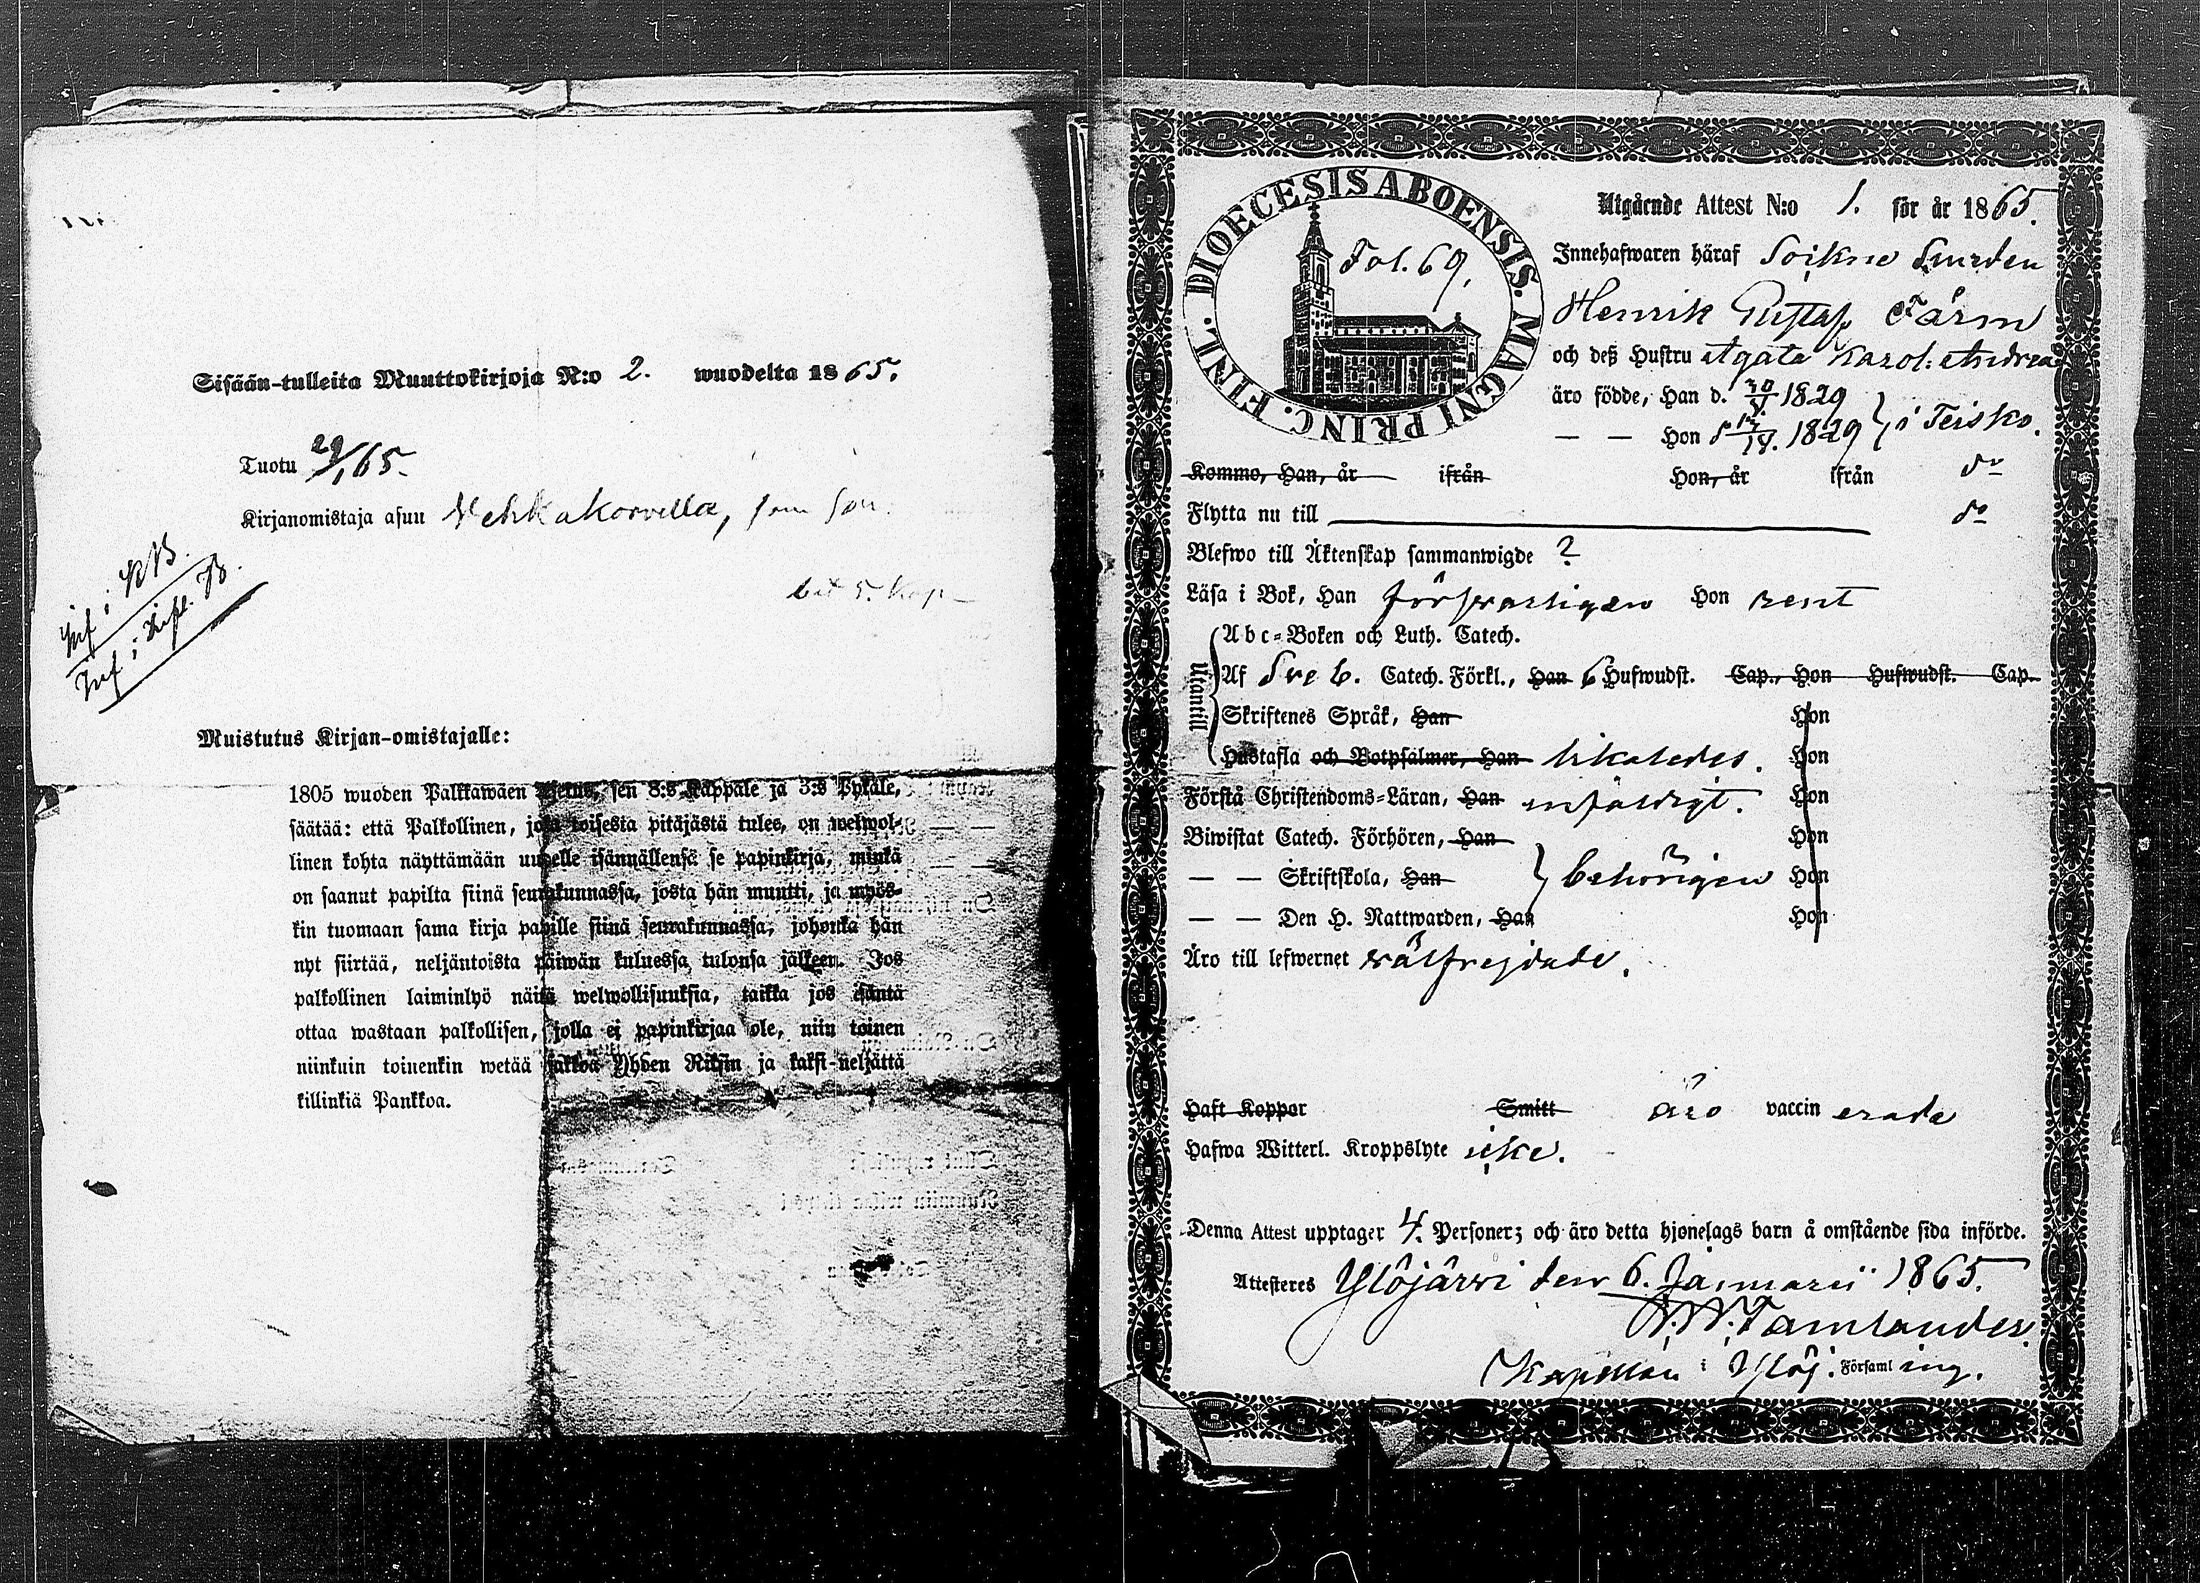 Sisään-tulleita Muuttokirjoja N:o 2. wuodelta 1865.
Tuotu 29/1 65.
Kirjanomistaja asuu Vehkakorvella, som son.
Inf i KB.
Inf i
bet 5. kop
Muistutus Kirjan-omistajalle:
1805 wuoden Palkkawäen sen 8:s Kappale ja 3:s Pykäle,
säätää: että Palkollinen, joka toisesta pitäjästä tulee, on welwol-
linen kohta näyttämään uudelle isännällensä se papinkirja, minkä
on saanut papilta siinä seurakunnassa, josta hän muutti, ja myös-
kin tuomaan sama kirja papille siinä seurakunnassa, johonka hän
nyt siirtää, neljäntoista päiwän kuluessa tulonsa jälkeen. Jos
palkollinen laiminlyö näitä welwollisuuksia, taikka jos isäntä
ottaa wastaan palkollisen, jolla ei papinkirjaa ole, niin toinen
niinkuin toinenkin wetää sakkoa Yhden Riksin ja kaksi-neljättä
killinkiä Pankkoa.
FINL. DIOECESIS ABOENSIS. MAGNI PRINC.
Fol. 69.
Utgående Attest N:o 1. för år 1865.
Innehafwaren häraf
Henrik Gustaf Färm
och deß Hustru Agata Karol. Andrea
äro födde, Han d. 30/ 1829
— — Hon d 1829 } i Teisko.
Kommo, Han, år ifrån Hon, år ifrån do
Flytta nu till do
Blefwo till Äktenskap sammanwigde ?
Läsa i Bok, Han försvarligen Hon rent
Utantill
Abc-Boken och Luth. Catech.
Af Sve b. Catech. Förkl., Han 6 Hufwudst. Cap., Hon Hufwudst. Cap.
Skriftenes Språk, Han Hon
Hustafla och Botpsalmer, Han likaledes. Hon
Förstå Christendoms-Läran, Han enfaldigt. Hon
Biwistat Catech. Förhören, Han Hon
— — Skriftskola, Han } behörigen Hon
— — Den H. Nattwarden, Han Hon
Äro till lefwernet välfrejdade.
Haft Koppor Smitt äro vaccinerade
Hafwa Witterl. Kroppslyte icke.
Denna Attest upptager 4. Personer; och äro detta hjonelags barn å omstående sida införde.
Attesteres Ylöjärvi den 6. Januarii 1865.
Tamlander
Kapellan i Ylöj. Församling.